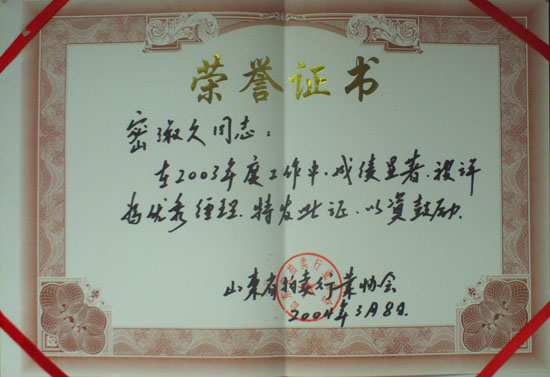 荣誉证书
密淑久同志：
在2003年度工作中、成绩显著、被评
为优秀经理、特发此证、以资鼓励.
山东省拍卖行业协会
2004年3月8日.